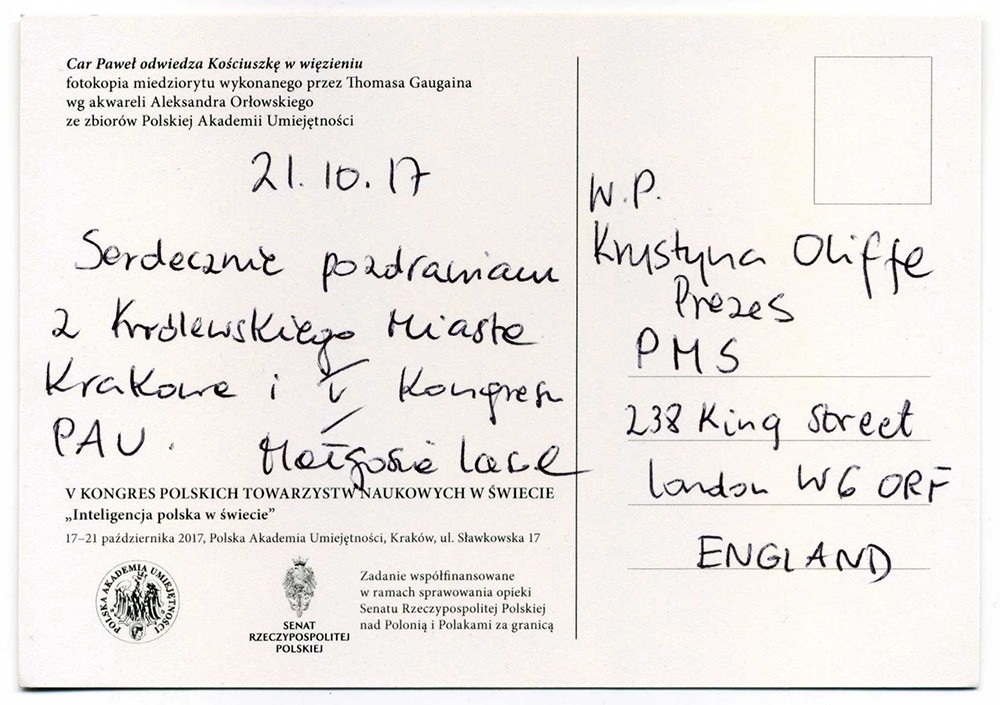 Car Paweł odwiedza Kościuszkę w więzieniu
fotokopia miedziorytu wykonanego przez Thomasa Gaugaina
wg akwareli Aleksandra Orłowskiego
ze zbiorów Polskiej Akademii Umiejętności
21.10.17
Serdecznie pozdrawiam
z Królewskiego Miasta
Krakowa i V Kongresu
PAU.
Małgosia
V KONGRES POLSKICH TOWARZYSTW NAUKOWYCH W ŚWIECIE
„Inteligencja polska w świecie”
17–21 października 2017, Polska Akademia Umiejętności, Kraków, ul. Sławkowska 17
POLSKA AKADEMIA UMIEJĘTNOŚCI
SENAT
RZECZYPOSPOLITEJ
POLSKIEJ
Zadanie współfinansowane
w ramach sprawowania opieki
Senatu Rzeczypospolitej Polskiej
nad Polonią i Polakami za granicą
W.P.
Krystyna Oliffe
Prezes
PMS
238 King Street
London W6 ORF
ENGLAND